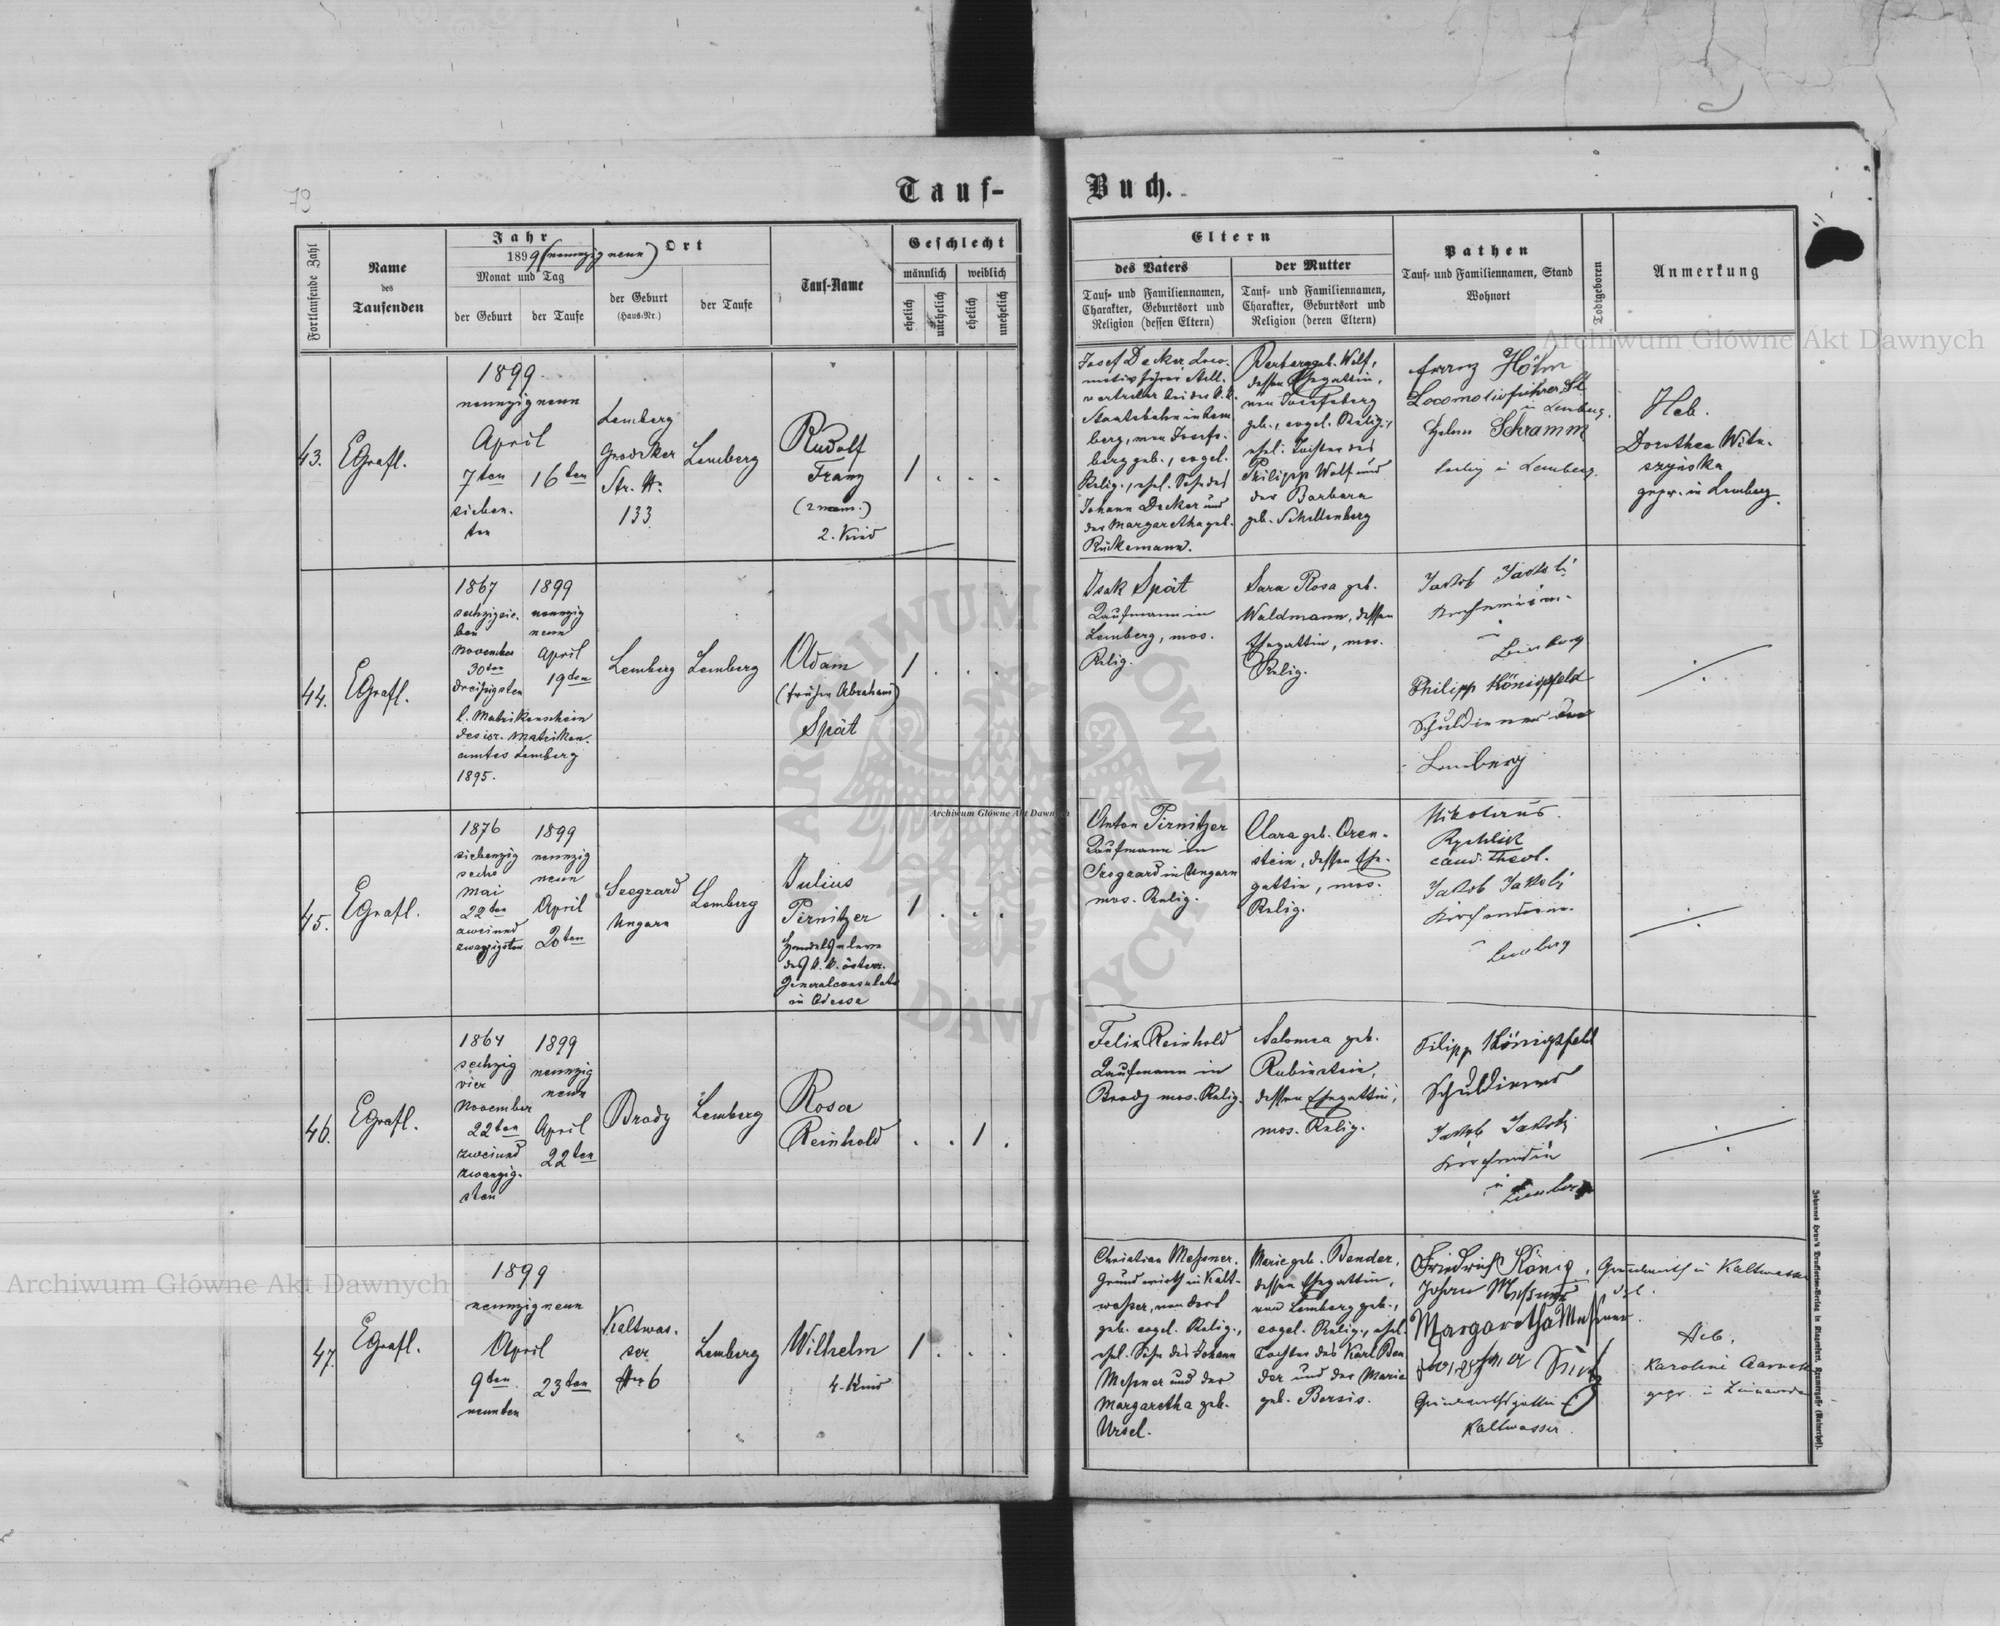 79
Tauf-
Buch.
Fortlaufende Zahl
Name
des
Taufenden
Jahr
1899 (neunzig neun)
Monat und Tag
der Geburt
der Taufe
Ort
der Geburt
(Haus-Nr.)
der Taufe
Tauf-Name
Geschlecht
männlich
weiblich
ehelich
unehelich
ehelich
unehelich
Eltern
des Vaters
Tauf- und Familiennamen,
Charakter, Geburtsort und
Religion (dessen Eltern)
der Mutter
Tauf- und Familiennamen,
Charakter, Geburtsort und
Religion (deren Eltern)
Pathen
Tauf- und Familiennamen, Stand
Wohnort
Todtgeboren
Anmerkung
43.
EGrafl.
1899
neunzig neun
April
7ten
sieben-
ten
16ten
Lemberg
Grodeker
Str. Nr.
133
Lemberg
Rudolf
Franz
2. Kind
1
Josef Decker, Loco-
motivführer Stell-
vertreter bei der k.k.
Staatsbahn in Lem
berg, von Josefs-
berg geb., evgel.
Relig., ehel. Sohn des
Johann Decker und
der Margaretha geb.
Rückemann.
Barbara geb. Wolf,
dessen Ehegattin,
von Josefsberg
geb., evgel. Relig.,
ehel. Tochter des
Philipp Wolf und
der Barbara
geb. Schellenberg
Franz Höhn
Locomotivführer St.
in Lemberg.
Schramm
ledig in Lemberg.
Heb.
Dorothea
gepr. in Lemberg.
44.
EGrafl.
1867
sechzigsie-
ben
November
30ten
dreißigsten
l. Matrikenschein
des isr. Matriken-
amtes Lemberg
1895.
1899
neunzig
neun
April
19ten
Lemberg
Lemberg
Adam
(früher Abraham)
Spät
1
Isak Spät
Kaufmann in
Lemberg, mos.
Relig.
Sara Rosa geb.
Waldmann, dessen
Ehegattin, mos.
Relig.
Jakob Jakobi
Kirchendiener
in
Lemberg
Philipp Königsfeld
Schuldiener
Lemberg
45.
EGrafl.
1876
siebenzig
sechs
Mai
22ten
zweiund
zwanzigsten
1899
neunzig
neun
April
20ten
Ungarn
Lemberg
Julius
Pirnitzer
des k.k. österr.
Generalconsulats
in Odessa
1
Anton Pirnitzer
Kaufmann in
in Ungarn
mos. Relig.
Clara geb. Oren-
stein, dessen Ehe-
gattin, mos.
Relig.
Nikolaus
Rychlik
cand. theol.
Jakob Jakobi
Kirchendiener
in
Lemberg
46.
EGrafl.
1864
sechzig
vier
November
22ten
zweiund
zwanzig-
sten
1899
neunzig
neun
April
22ten
Brody
Lemberg
Rosa
Reinhold
1
Felix Reinhold
Kaufmann in
Brody mos. Relig.
Salomea geb.
Rubinstein,
dessen Ehegattin,
mos. Relig.
Filipp Königsfeld
Schuldiener
Jakob Jakobi
Kirchendien
in Lemberg
47.
EGrafl.
1899
neunzig neun
April
9ten
neunten
23ten
Kaltwas-
ser
Nr 6
Lemberg
Wilhelm
4. Kind
1
Christian Meßner,
Grundwirth in Kalt-
wasser, von dort
geb. evgel. Relig.,
ehel. Sohn des Johann
Meßner und der
Margaretha geb.
Ursel.
Marie geb. Bender,
dessen Ehegattin,
von Lemberg geb.,
evgel. Relig., ehel.
Tochter des Karl Ben
der und der Marie
geb. Bersis.
Friedrich König, Grundwirth in Kaltwasser
Johann Meßner, dsl.
Margaretha Meßner
Grundwirthsgattin
Kaltwasser.
Heb.
Karolina
gepr. in
Johannes Heyn's Druckserien-Verlag in Klagenfurt, Kramergasse (Rainerhof).
Archiwum Główne Akt Dawnych
Archiwum Główne Akt Dawnych
Archiwum Główne Akt Dawnych
ARCHIWUM GŁÓWNE AKT DAWNYCH